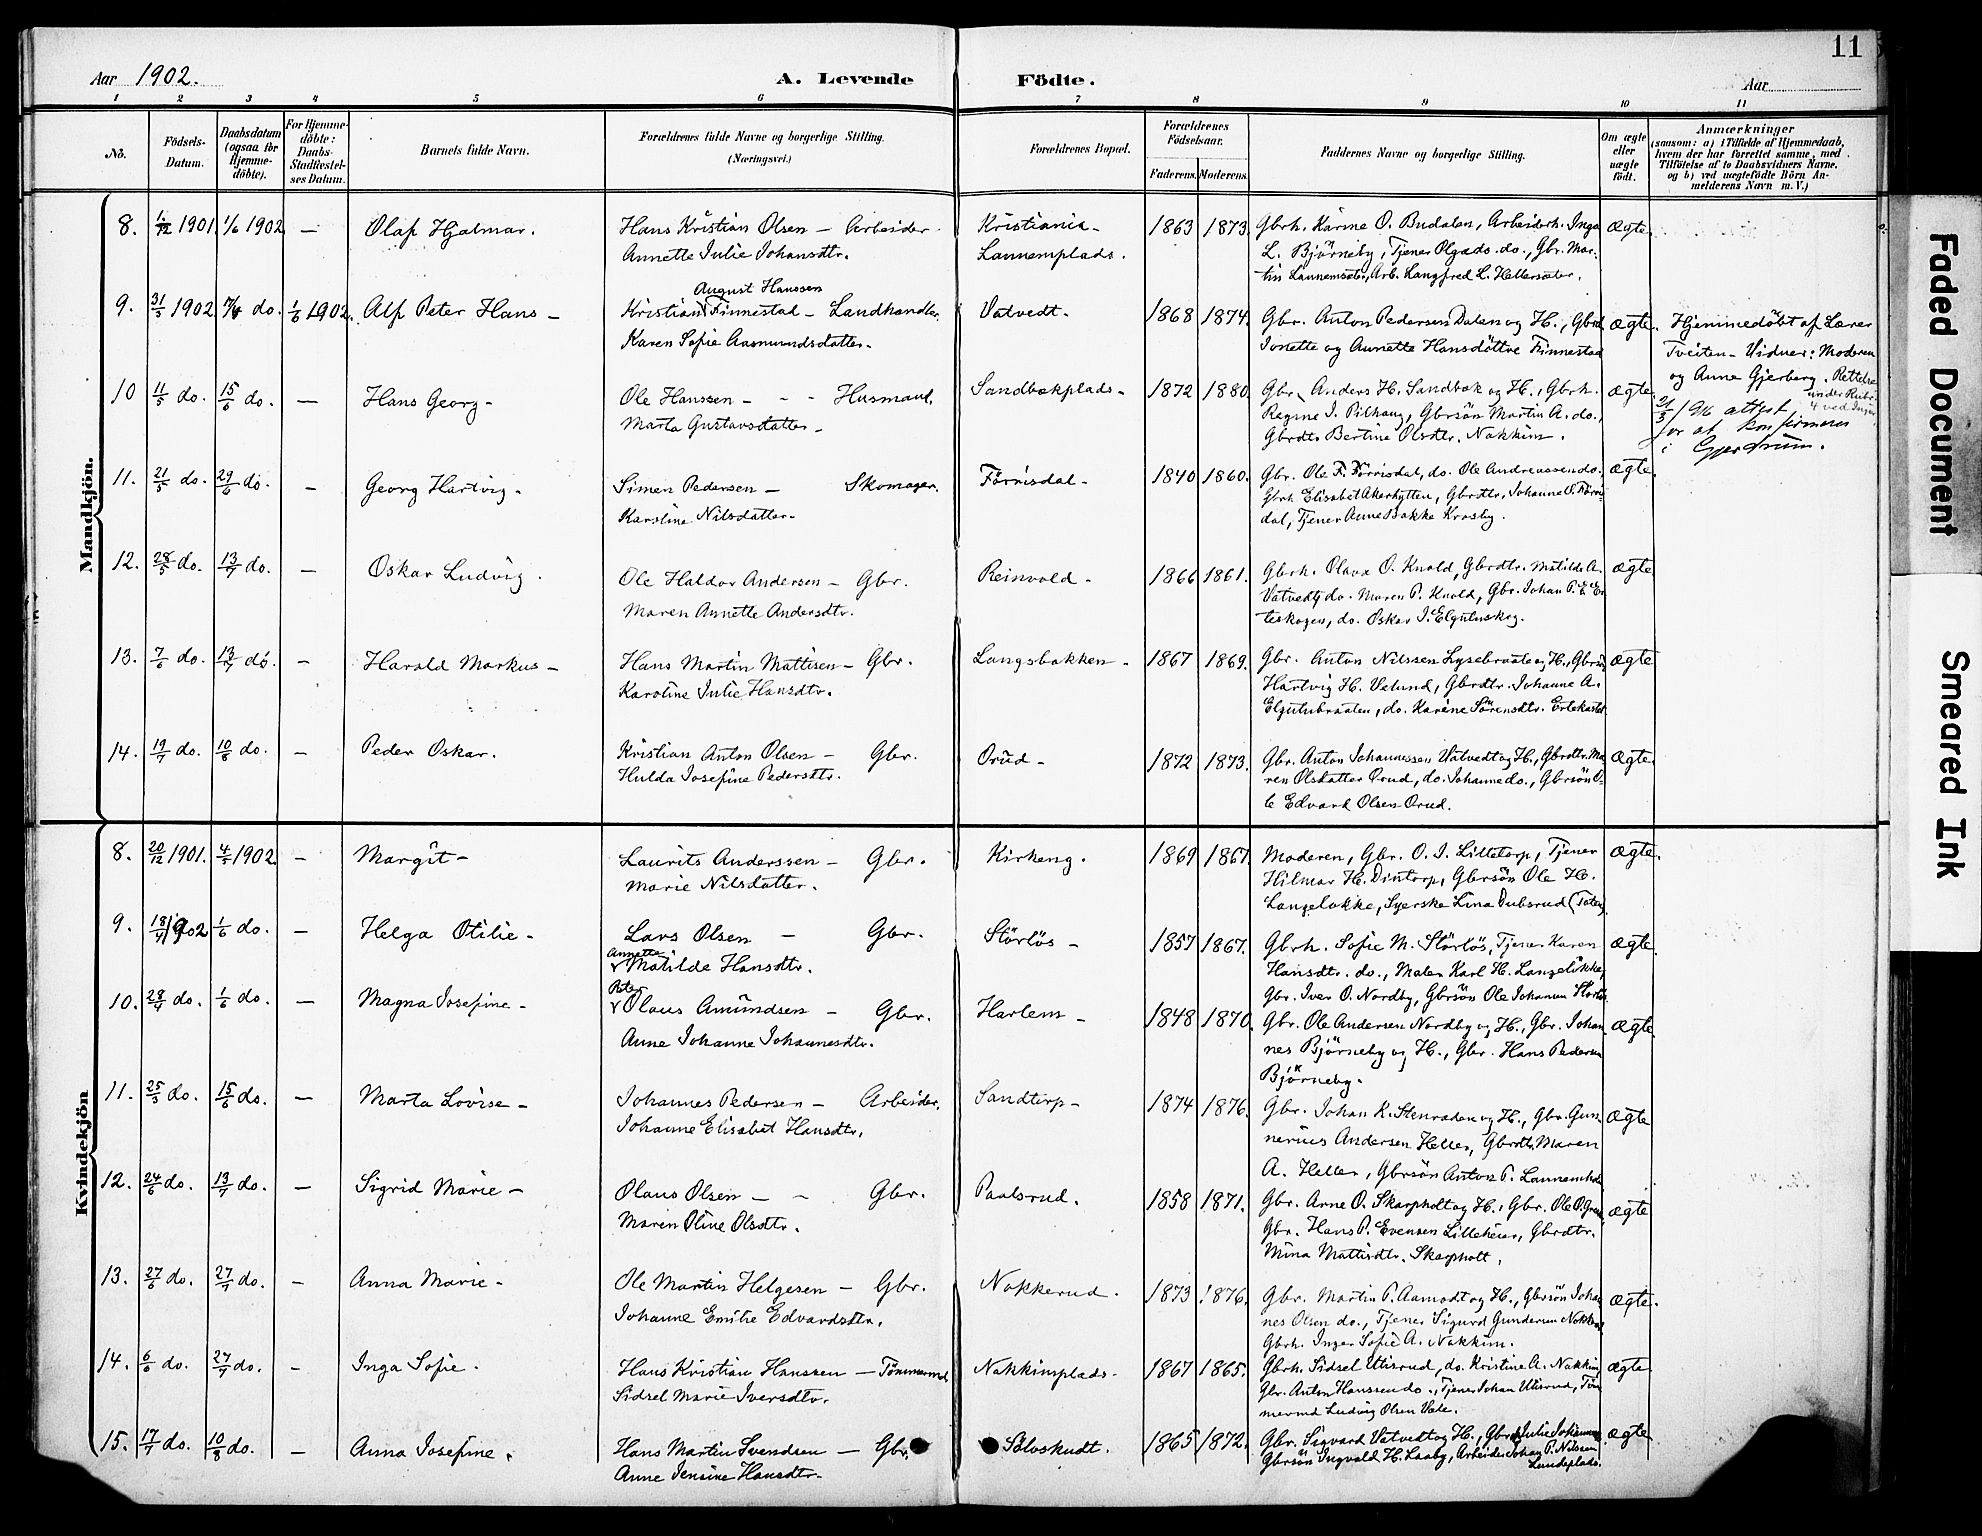 11
Aar 1902. A. Levende Födte. Aar
1 2 3 4 5 6 7 8 9 10 11
No. Födsels-Datum. Daabsdatum (ogsaa for Hjemme-döbte). For Hjemme-döbte: Daabs-Stadfæstel-ses Datum. Barnets fulde Navn. Forældrenes fulde Navne og borgerlige Stilling. (Næringsvei.) Forældrenes Bopæl. Forældrenes Födselsaar. Faderens. Moderens. Faddernes Navne og borgerlige Stilling. Om ægte eller uægte födt. Anmærkninger (saasom: a) i Tilfælde af Hjemmedaab, hvem der har forrettet samme, med Tilföielse af to Daabsvidners Navne, og b) ved uægtefödte Börn An-melderens Navn m. V.)
Mandkjön.
8. 1/12 1901. 1/6 1902 — Olaf Hjalmar. Hans Kristian Olsen — Arbeider. Kristiania- 1863 1873. Gbrh. Karine O. Budalen, Arbeiderh. Inga ægte.
Annette Julie Johansdtr. Lannemplads. L. Björneby, Tjener Olga do. do., Gbr. Mar-
tin Lannemsæter, Arb. Langfred L. Hellersæter.
August Hanssen
9. 31/3 1902 do. 1/6 1902. Alf Peter Hans — Kristian Finnestad — Landhandler. Vatvedt. 1868 1874. Gbr. Anton Pedersen Dalen og H., Gbrd. ægte. Hjemmedöbt af Lærer
Karen Sofie Aasmundsdatter. Jonette og Annette Hansdöttre Finnestad Tveiten. Vidner: Moderen
og Anne Gjerberg. Rettelse
under Rubr.
4 ved
10 11/5 do. 15/6 do. — Hans Georg — Ole Hanssen — Husmand. Sandbækplads — 1872 1880. Gbr. Anders H. Sandbæk og H., Gbrh. ægte.
Marta Gustavsdatter — Regine J. Pilhaug, Gbrsön Martin A. do., 21/3 1916 attest
Gbrdtr. Bertine Olsdtr. Nakkim. for at konfirmeres
i Gjerdrum.
11. 21/5 do. 29/6 do. — Georg Hartvig — Simen Pedersen — Skomager. Förrisdal — 1840 1860. Gbr. Ole F. Förrisdal, do. Ole Andreassen do. ægte.
Karoline Nilsdatter. Gbrh. Elisabet Akerhytten, Gbrdtr. Johanne O. Förris
dal, Tjener Anne Bakke Krosby.
12. 28/5 do. 13/7 do. — Oskar Ludvig. Ole Haldor Andersen — Gbr. Reinvold — 1866 1861. Gbrh. Olava O. Knold, Gbrdtr. Matilde A. ægte.
Maren Annette Andersdtr. Vatvedt, do. Maren P. Knold, Gbr. Johan P. E. Er
teskogen, do. Oskar J. Elgtunskog.
13. 7/6 do. 13/7 do. — Harald Markus — Hans Martin Mattisen — Gbr. Langsbakken — 1867 1869. Gbr. Anton Nilssen Lysebraate og H., Gbrsön ægte
Karoline Julie Hansdtr. Hartvig H. Velund, Gbrdtr. Johanne A.
Elgtunbraaten, do. Karine Sörensdtr.
14. 19/7 do. 10/8 do. — Peder Oskar. Kristian Anton Olsen — Gbr. Orud — 1872 1873. Gbr. Anton Johannessen Vatvedt og H., Gbrdtr. Ma ægte.
Hulda Josefine Pedersdtr. ren Olsdatter Orud, do. Johanne do., Gbrsön O-
le Edvard Olsen Orud.
Kvindekjön
8. 20/12 1901. 4/5 1902. — Margit — Laurits Anderssen — Gbr. Kirkeng. 1869 1867. Moderen, Gbr. O. J. Littetorp, Tjener ægte.
Marie Nilsdatter. Hilmar H. Dintorp, Gbrsön Ole H.
Langelökke, Syerske Lina Dubsrud (Toten)
9. 18/4 1902 1/6 do. — Helga Otilie — Lars Olsen — Gbr. Störlös — 1857 1867. Gbrh. Sofie M. Störlös, Tjener Karen ægte.
Annette
Matilde Hansdtr. Hansdtr. do., Maler Karl H. Langelökke,
Gbr. Iver O. Nordby, Gbrsön Ole Johansen Störlös
Peter
10. 28/4 do. 1/6 do. — Magna Josefine — Olaus Amundsen — Gbr. Harlem — 1848 1870. Gbr. Ole Andersen Nordby og H., Gbr. Johan ægte.
Anne Johanne Johannesdtr. nes Björneby og H., Gbr. Hans Pedersen
Björneby.
11. 25/3 do. 15/6 do. — Marta Lovise — Johannes Pedersen — Arbeider. Sandtorp — 1874 1876. Gbr. Johan K. Stenraden og H., Gbr. Gun- ægte
Johanne Elisabet Hansdtr. nerius Andersen Heller, Gbrdtr. Maren
A. Heller, Gbrsön Anton P. Lannemhola
12. 24/6 do. 13/7 do. — Sigrid Marie — Olaus Olsen — Gbr. Paalsrud. 1858 1871. Gbr. Arne O. Skarpholt og H., Gbr. Ole P. ægte
Maren Oline Olsdtr. Gbr. Hans P. Evensen Lilleheier, Gbrdtr.
Mina Mattisdtr. Skarpholt.
13. 27/6 do. 27/7 do. — Anna Marie — Ole Martin Helgesen — Gbr. Nakkerud. 1873 1876. Gbr. Martin P. Aamodt og H., Gbrsön Johan ægte.
Johanne Emilie Edvardsdtr. nes Olsen do., Tjener Sigurd Gundersen Nakkerud
Gbrh. Inger Sofie A. Nakkim.
14. 6/6 do. 27/7 do. — Inga Sofie. Hans Kristian Hanssen — Tömmermd. Nakkimplads. 1867 1865. Gbrh. Sidsel Utisrud, do. Kristine A. Nakkim, ægte
Sidsel Marie Iversdtr. Gbr. Anton Hanssen do., Tjener Johan Utisrud, Töm
mermd Ludvig Olsen Væle.
15. 17/7 do. 10/8 do. — Anna Josefine. Hans Martin Svendsen — Gbr. Sölvskudt. 1865 1872. Gbr. Sigvard Vatvedt og H., Gbrd. Julie Johannes ægte.
Anne Jensine Hansdtr. Gbrsön Ingvald H. Laaby, Arbeider Johan P. Nilssen
Lundeplads.
Faded Document
Smeared Ink